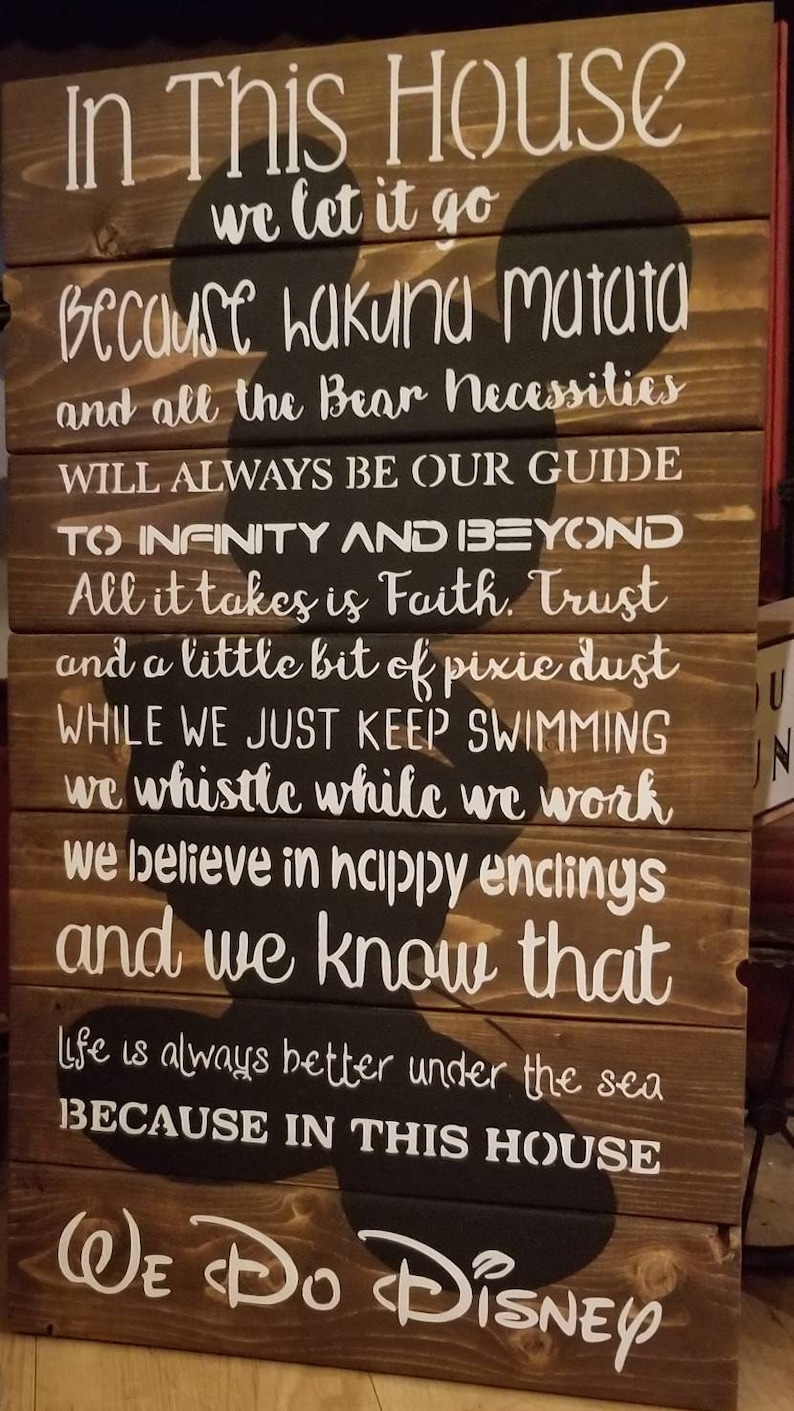 In This House
we let it go
Because hakuna matata
and all the Bear Necessities
WILL ALWAYS BE OUR GUIDE
TO INFINITY AND BEYOND
All it takes is Faith, Trust
and a little bit of pixie dust
WHILE WE JUST KEEP SWIMMING
we whistle while we work
we believe in happy endings
and we know that
life is always better under the sea
BECAUSE IN THIS HOUSE
We Do Disney